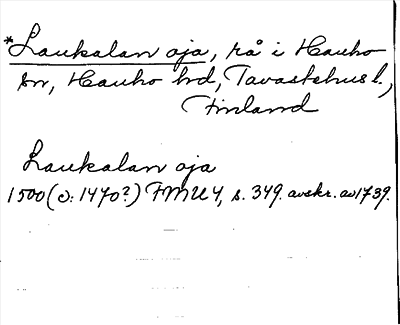 *Laukalan oja, rå i Hauho
sn, Hauho hd, Tavastehus l.,
Finland
Laukalan oja
1500 (o: 1470?) FMU 4, s. 349. avskr. av 1739.